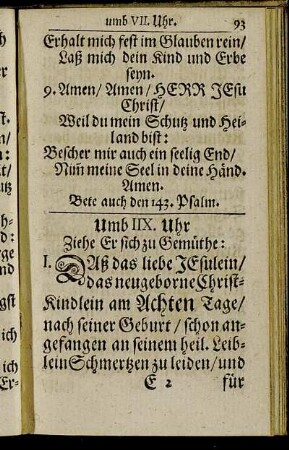 umb VII. Uhr. 93
Erhalt mich fest im Glauben rein/
Laß mich dein Kind und Erbe
seyn.
9. Amen/ Amen/ HERR JEsu
Christ/
Weil du mein Schutz und Hei-
land bist:
Bescher mir auch ein seelig End/
Nim̃ meine Seel in deine Händ.
Amen.
Bete auch den 143. Psalm.
Umb IIX. Uhr
Ziehe Er sich zu Gemüthe:
I. DAß das liebe JEsulein/
das neugeborne Christ-
Kindlein am Achten Tage/
nach seiner Geburt/ schon an-
gefangen an seinem heil. Leib-
lein Schmertzen zu leiden/ und
E 2 für